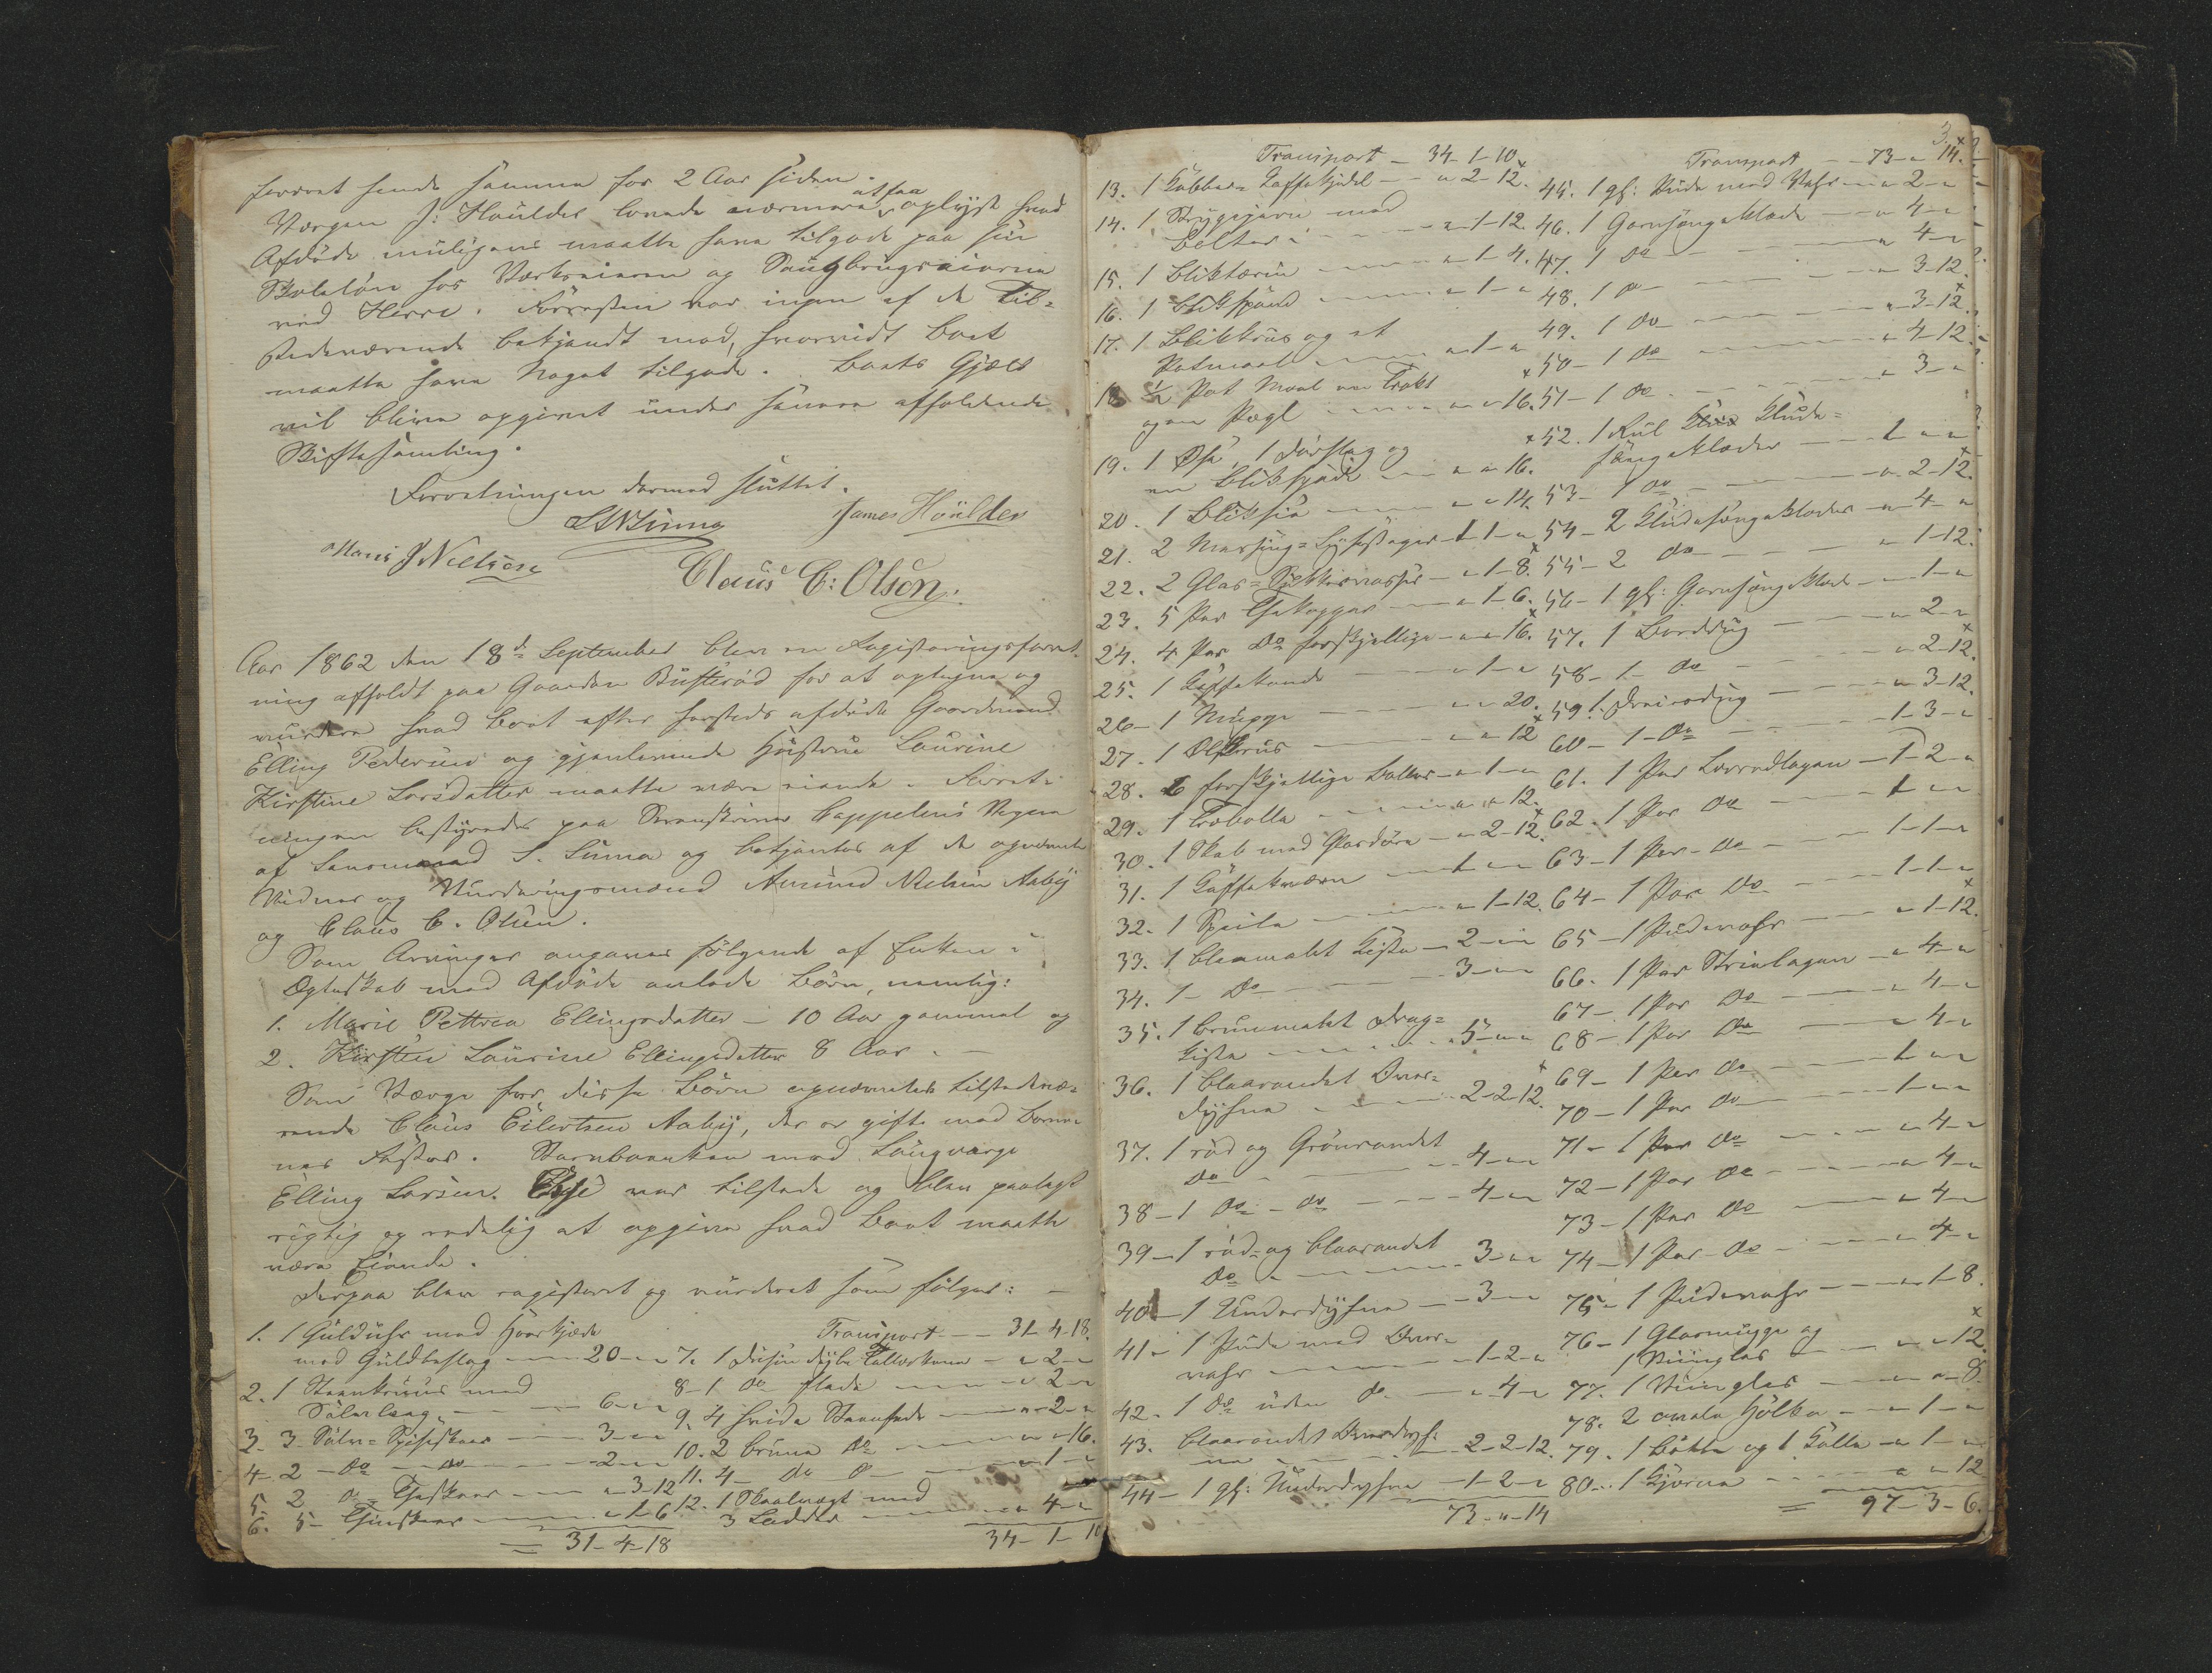 forrevet sende samme for 2 Aar siden.
Værgen J. Houlder lovede nærmere at faa oplyst hvad
Afdøde muligens maatte have tilgode paa sin
Skoleløn hos Værkseieren og Saugbrugseierne
ved Herre. Forresten var ingen af de Til-
stedeværende bekjendt med, hvorvidt Boet
maatte have Noget tilgode. Boets Gjæld
vil blive opgivet under senere affholdende
Skiftesamling.
Forretningen dermed sluttet.
James Houlder
J Nielsen
Claus C: Olsen.
Aar 1862 den 18d September blev en Registreringsforret-
ning affholdt paa Gaarden Busterød for at optegne og
vurdere hvad Boet efter hersteds afdøde Gaardmand
Elling Pedersen og gjenlevende Hustrue Laurine
Kirstine Larsdatter maatte være eiende. Forret-
ningen bestyredes paa Sorenskriver Cappelens Vegne
af Lensmand S. Linna og betjentes af de opnævnte
Vidner og Vurderingsmænd Amund Nielsen Aaby
og Claus C. Olsen.
Som Arvinger angaves følgende af Enken i
Egteskab med Afdøde avlede Børn, nemlig:
1. Marie Pettrea Ellingsdatter – 10 Aar gammel og
2. Kirsten Laurine Ellingsdatter 8 Aar. –
Som Værge for disse Børn opnævntes tilstedevæ-
rende Claus Eilertsen Aaby, der er gift med Børne-
nes Faster. Sterbeenken med Laugværge
Elling Larsen var tilstede og blev paalagt
rigtig og redelig at opgive hvad Boet maatte
være eiende.
Derpaa blev registeret og vurderet som følger: –
1. 1 Gulduhr med Haarkjæde
med Guldbeslag — 20 - " - "
2. 1 Steenkruus med
Sølvlaag — 6 - " - "
3. 3 Sølv-Spiseskeer — 3 - " - "
4. 2 – do – do — 2 - " - "
5. 2 do Theskeer — " - 3 - 12
6. 5 – Theeskeer — " - 1 - 6
= 31 - 4 - 18
Transport — 31 - 4 - 18.
7. 1 Dusin dybe Tallerkener — " - 2 - "
8 – 1 do flade — " - 2 - "
9. 4 hvide Steenfade — " - 2 - "
10. 2 brune do — " - " - 16.
11. 4 – do do — " - 1 - "
12. 1 Skaalvægt med
3 Lodder — " - 4 - "
34 - 1 - 10
3.
Transport – 34 - 1 - 10
13. 1 Kobber-Kaffekjedel — " - 2 - 12.
14. 1 Strygejern med
Bolter — " - 1 - 12.
15. 1 Bliktærin — " - 1 - 4.
16. 1 Blikspand — " - 1 - "
17. 1 Blikkrus og et
Potmaal — " - 1 - "
18. ½ Pot Maal en Trakt
og en Pægl — " - " - 16.
19. 1 Øse, 1 Dørslag og
en Blikspade — " - " - 16.
20. 1 Bliksie — " - " - 14.
21. 2 Messing-Lysestager — 1 - 1 - "
22. 2 Glas-Sukkervasser — " - 1 - 8.
23. 5 Par Thekopper — " - 1 - 6.
24. 4 Par do forskjellige — " - " - 16.
25. 1 Kaffekande — " - 1 - "
26 – 1 Mugge — " - " - 20.
27. 1 Ølkrus — " - " - 12
28. 6 forskjellige Boller — " - 1 - "
29. 1 Træbolle — " - " - 12.
30. 1 Skab med Glasdøre — " - 2 - 12.
31. 1 Kaffekværn — 1 - " - "
32. 1 Speile — " - 1 - 12.
33. 1 blaamalet Kiste — 2 - " - "
34. 1 – do — 3 - " - "
35. 1 brunmalet Drag-
kiste — 5 - " - "
36. 1 blaarandet Over-
dyhne — 2 - 2 - 12.
37. 1 rød og Grønrandet
do — 4 - " - "
38 – 1 do – do — 4 - " - "
39 – 1 rød- og blaarandet
do — 3 - " - "
40 – 1 Underdyhne — 3 - " - "
41 – 1 Pude med Over-
vahr — 1 - 2 - "
42. 1 do uden do — " - 4 - "
43. blaarandet Overdyh-
ne — 2 - 2 - 12.
44 – 1 gl: Underdyhne — 1 - 2 - "
73 - " - 14
Transport — 73 - " - 14.
45. 1 gl: Pude med Vahr — " - 2 - "
46. 1 Garnsængeklæde — " - 4 - "
47. 1 do — " - 4 - "
48. 1 do — " - 3 - 12.
49. 1 do — " - 3 - 12
50 – 1 do — " - 4 - 12.
51 – 1 do — " - 3 - "
52. 1 Rul Klude-
sængeklæder — 1 - " - "
53 – 1 do — " - 2 - 12.
54 – 2 Kludesængeklæder — " - 4 - "
55 – 2 do — " - 1 - 12.
56 – 1 gl: Garnsængeklæde — " - 1 - "
57. 1 Borddug — " - 2 - "
58 – 1 – do — " - 2 - 12.
59. 1 Dreieldug — " - 3 - 12.
60 – 1 – do — 1 - 3 - "
61. 1 Par Lerredslagen — 1 - 2 - "
62. 1 Par do — 1 - " - "
63 – 1 Par – do — 1 - 1 - "
64 – 1 Par do — 1 - 1 - "
65 – 1 Pudevahr — " - 1 - 12.
66. 1 Par Strielagen — " - 4 - "
67 – 1 Par do — " - 4 - "
68 – 1 Par do — " - 4 - "
69 – 1 Par do — 1 - " - "
70 – 1 Par do — 1 - " - "
71 – 1 Par do — " - 4 - "
72 – 1 Par do — " - 4 - "
73 – 1 Par do — " - 4 - "
74 – 1 Par – do — " - 4 - "
75 – 1 Pudevahr — " - 1 - 8.
76 – 1 Glasmugge og
1 Viinglas — " - " - 12.
77. 1 Viinglas — " - " - 8.
78. 2 Hølker — " - 1 - "
79. 1 Bøtte og 1 Kolle — " - 1 - "
80. 1 Kjærne — " - " - 12
= 97 - 3 - 6.